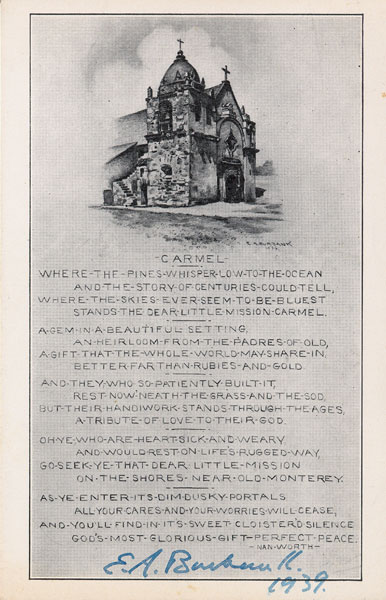 E.A. BURBANK
-CARMEL-
WHERE-THE-PINES-WHISPER-LOW-TO-THE-OCEAN
AND-THE-STORY-OF-CENTURIES-COULD-TELL,
WHERE-THE-SKIES-EVER-SEEM-TO-BE-BLUEST
STANDS-THE-DEAR-LITTLE-MISSION-CARMEL.
A-GEM-IN-A-BEAUTIFUL-SETTING,
AN-HEIRLOOM-FROM-THE-PADRES-OF-OLD,
A-GIFT-THAT-THE-WHOLE-WORLD-MAY-SHARE-IN,
BETTER-FAR-THAN-RUBIES-AND-GOLD.
AND-THEY-WHO-SO-PATIENTLY-BUILT-IT,
REST-NOW-'NEATH-THE-GRASS-AND-THE-SOD,
BUT-THEIR-HANDIWORK-STANDS-THROUGH-THE-AGES,
A-TRIBUTE-OF-LOVE-TO-THEIR-GOD.
OH-YE-WHO-ARE-HEART-SICK-AND-WEARY
AND-WOULD-REST-ON-LIFE'S-RUGGED-WAY,
GO-SEEK-YE-THAT-DEAR-LITTLE-MISSION
ON-THE-SHORES-NEAR-OLD-MONTEREY.
AS-YE-ENTER-ITS-DIM-DUSKY-PORTALS
ALL-YOUR-CARES-AND-YOUR-WORRIES-WILL-CEASE,
AND-YOU'LL-FIND-IN-ITS-SWEET-CLOISTER'D-SILENCE
GOD'S-MOST-GLORIOUS-GIFT-PERFECT-PEACE.
-NAN-WORTH-
E.A. Burbank.
1939.